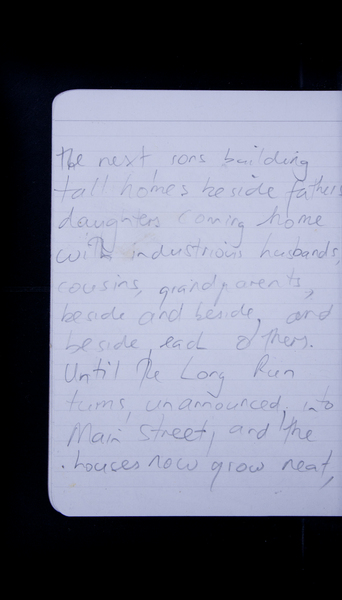 the next, sons building
tall homes beside fathers
daughters coming home
with industrious husbands,
cousins, grandparents,
beside and beside, and
beside, each others.
Until the Long Run
turns, unannounced, into
Main Street, and the
houses now grow neat,